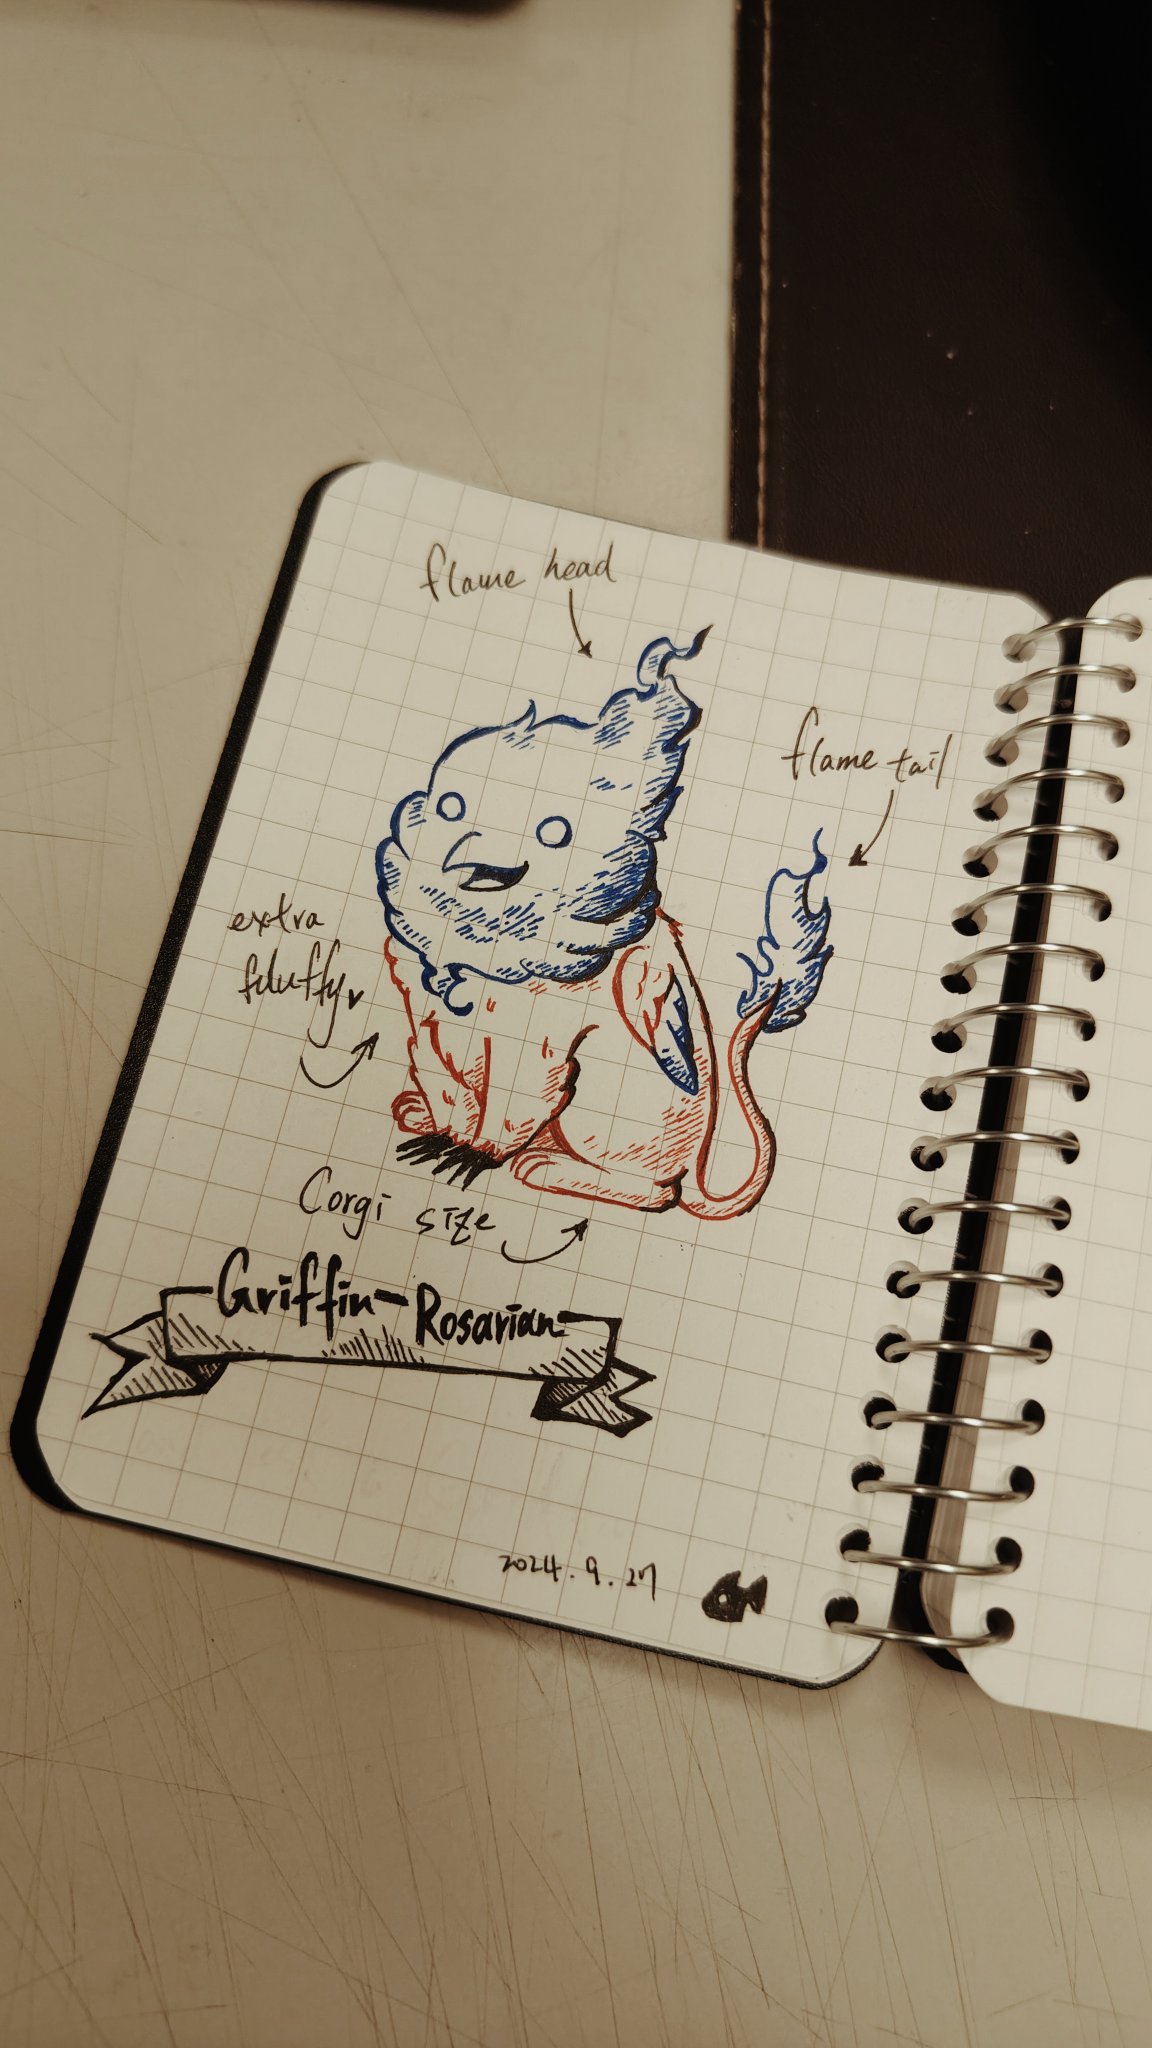 flame head
flame tail
extra
fluffy
Corgi size
Griffin-Rosarian
2024.9.27